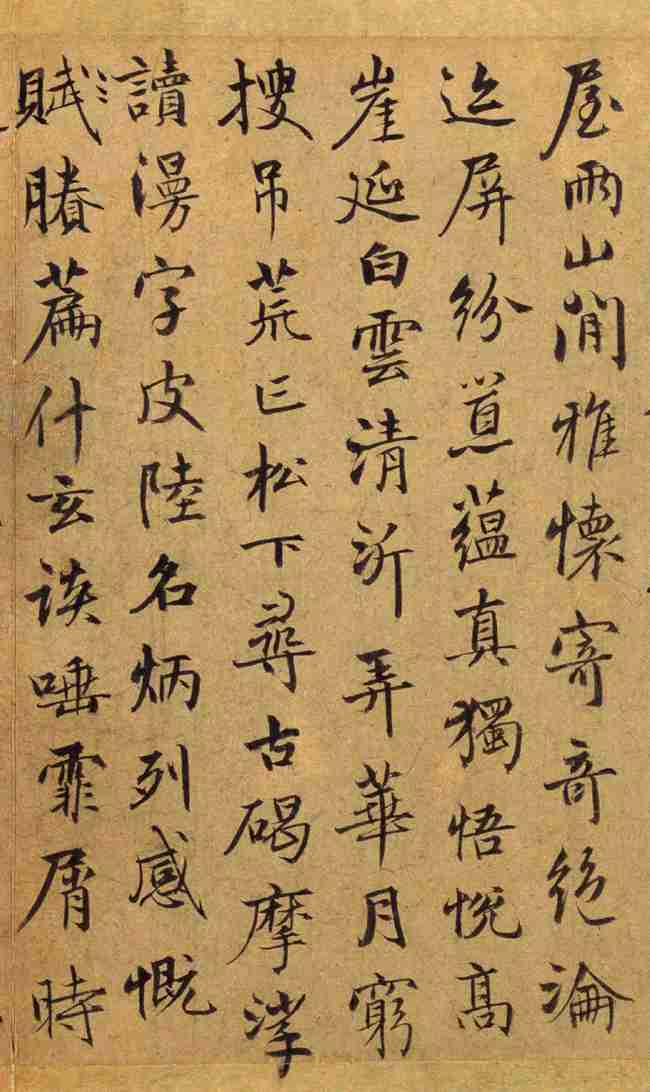 屋兩山間雅懷寄奇絕淪
迹屏紛囂蘊真獨悟悅高
崖延白雲清沂弄華月窮
搜吊荒亡松下尋古碣摩挲
讀漫字皮陸名炳列感慨
賦賸篇什玄談唾霏屑時